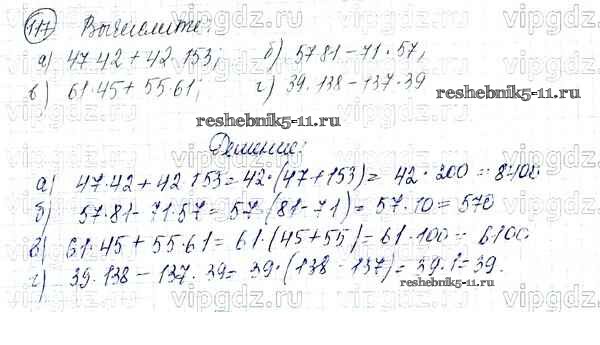 117) Вычислите:
а) 47·42 + 42·153; б) 57·81 – 71·57;
в) 61·45 + 55·61; г) 39·138 – 137·39
reshebnik5-11.ru
reshebnik5-11.ru
Решение:
а) 47·42 + 42·153 = 42·(47+153) = 42·200 = 8400
б) 57·81 – 71·57 = 57·(81–71) = 57·10 = 570
в) 61·45 + 55·61 = 61·(45+55) = 61·100 = 6100
г) 39·138 – 137·39 = 39·(138 – 137) = 39·1 = 39.
reshebnik5-11.ru
vipgdz.com